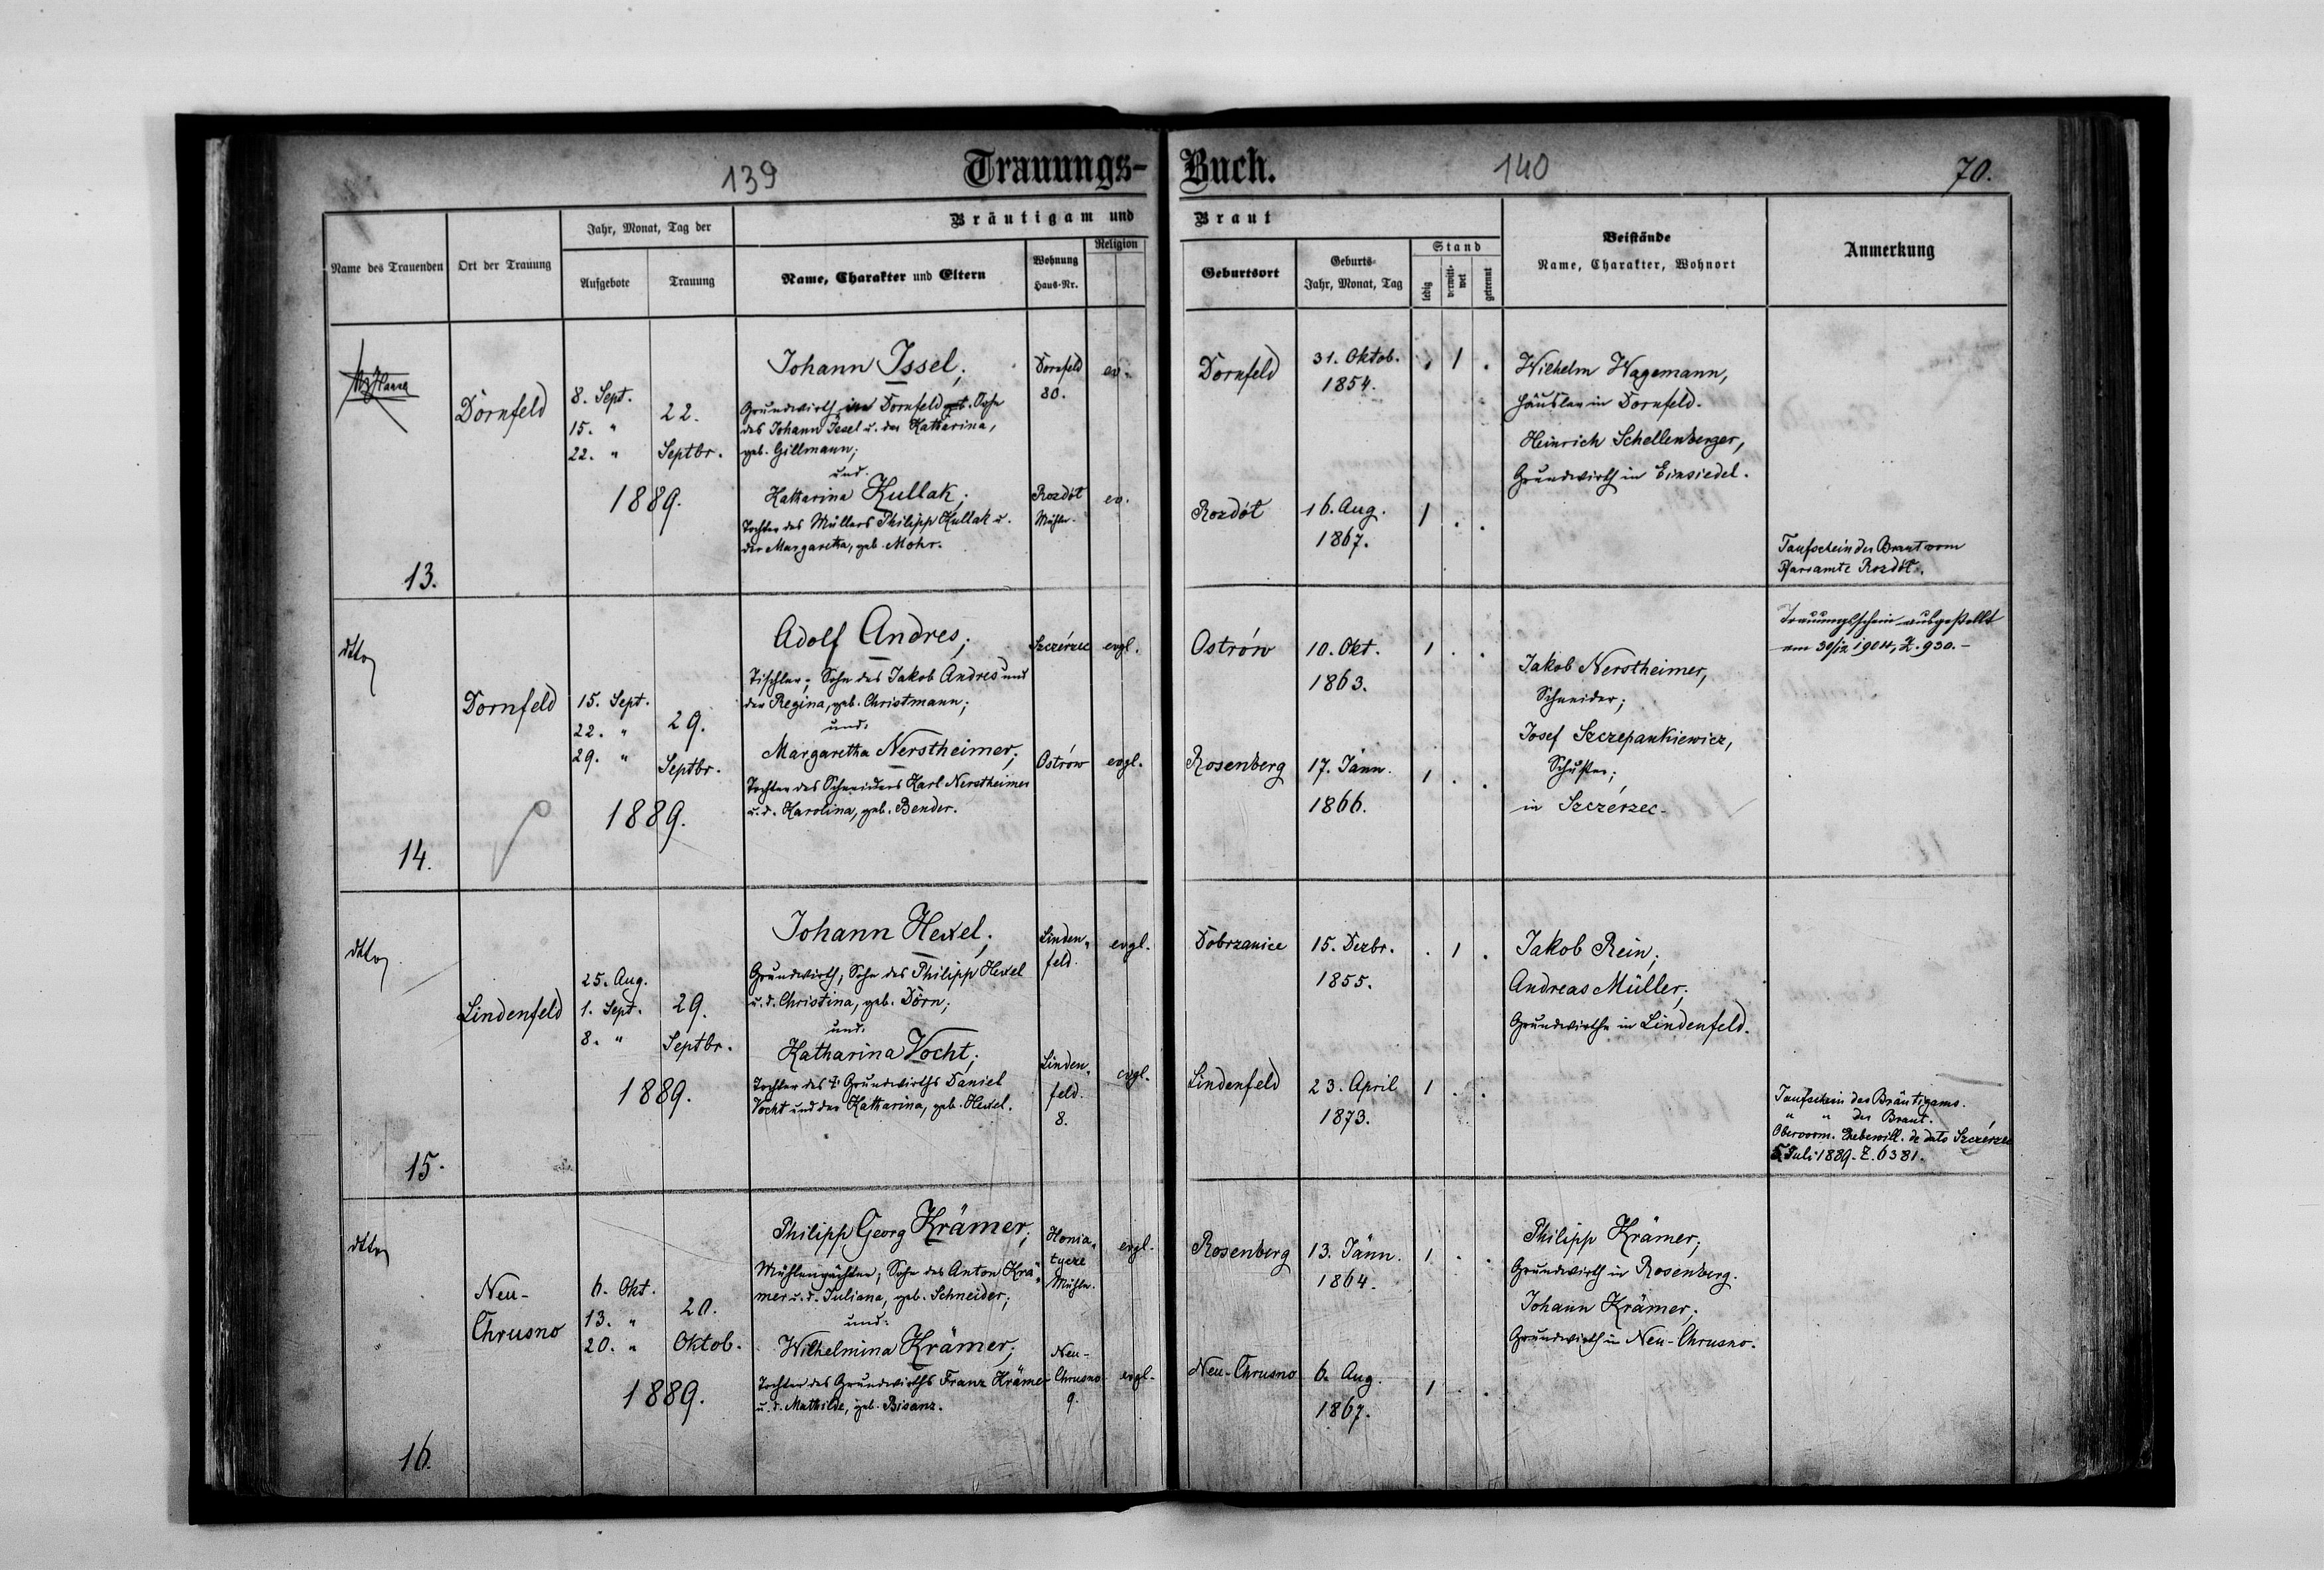 139
Trauungs-Buch.
140
70.
Name des Trauenden
Ort der Trauung
Jahr, Monat, Tag der
Aufgebote
Trauung
Bräutigam und Braut
Name, Charakter und Eltern
Wohnung
Haus-Nr.
Religion
Geburtsort
Geburts-
Jahr, Monat, Tag
Stand
ledig
verwitt-
wet
getrennt
Beistände
Name, Charakter, Wohnort
Anmerkung
13.
Dornfeld
8. Sept.
15. "
22. "
22.
Septbr.
1889.
Johann Issel;
Grundwirth in Dornfeld Sohn
des Johann Issel u. der Katharina,
geb. Gillmann;
und.
Katharina Kullak;
Tochter des Müllers Philipp Kullak u.
der Margaretha, geb. Mohr.
Dornfeld
80.
ev.
Rozdół
Mühle.
ev.
Dornfeld
31. Oktob.
1854.
. 1 .
Rozdół
16. Aug.
1867.
1 . .
Wilhelm Wagemann,
Häusler in Dornfeld.
Heinrich Schellenberger,
Grundwirth in Einsiedel.
Taufschein der Braut vom
Pfarramte Rozdół.
dtto
14.
Dornfeld
15. Sept.
22. "
29. "
29.
Septbr.
1889.
Adolf Andres;
Tischler; Sohn des Jakob Andres und
der Regina, geb. Christmann;
und.
Margaretha Nerstheimer;
Tochter des Schneiders Karl Nerstheimer
u. d. Karolina, geb. Bender.
Szczérzec
evgl.
Ostrów
evgl.
Ostrów
10. Okt.
1863.
1 . .
Rosenberg
17. Jänn.
1866.
1 . .
Jakob Nerstheimer,
Schneider;
Josef Szczepankiewicz,
Schuster;
in Szczérzec.
Trauungsschein ausgestellt
am 30/12 1904, Z. 930.-
dtto
15.
Lindenfeld
25. Aug.
1. Sept.
8. "
29.
Septbr.
1889.
Johann Hexel;
Grundwirth, Sohn des Philipp Hexel
u. d. Christina, geb. Dörn;
und.
Katharina Vocht;
Tochter des † Grundwirths Daniel
Vocht und der Katharina, geb. Hexel.
Linden-
feld.
evgl.
Linden-
feld.
8.
evgl.
Dobrzanice
15. Dezbr.
1855.
. 1 .
Lindenfeld
23. April
1873.
1 . .
Jakob Rein;
Andreas Müller;
Grundwirthe in Lindenfeld.
Taufschein des Bräutigams.
" " der Braut.
Obervorm. Ehebewill. de dato Szczérzec
5. Juli 1889. Z. 6381.
dtto
16.
Neu-
Chrusno
6. Okt.
13. "
20. "
20.
Oktob.
1889.
Philipp Georg Krämer;
Mühlenpächter; Sohn des Anton Krä-
mer u. d. Juliana, geb. Schneider;
und.
Wilhelmina Krämer;
Tochter des Grundwirths Franz Krämer
u. d. Mathilde, geb. Bisanz.
Honia-
tycze
Mühle.
evgl.
Neu-
Chrusno
9.
evgl.
Rosenberg
13. Jänn.
1864.
1 . .
Neu-Chrusno
6. Aug.
1867.
1 . .
Philipp Krämer;
Grundwirth in Rosenberg.
Johann Krämer;
Grundwirth in Neu-Chrusno.